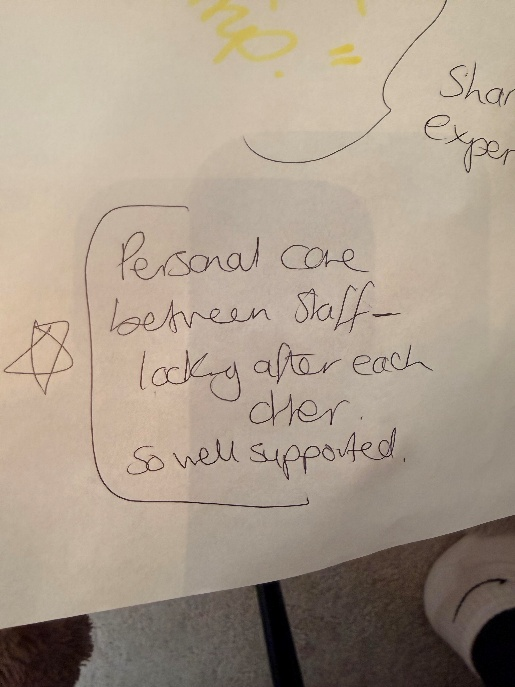 Shar
exper
Personal care
between staff-
looking after each
other.
so well supported.